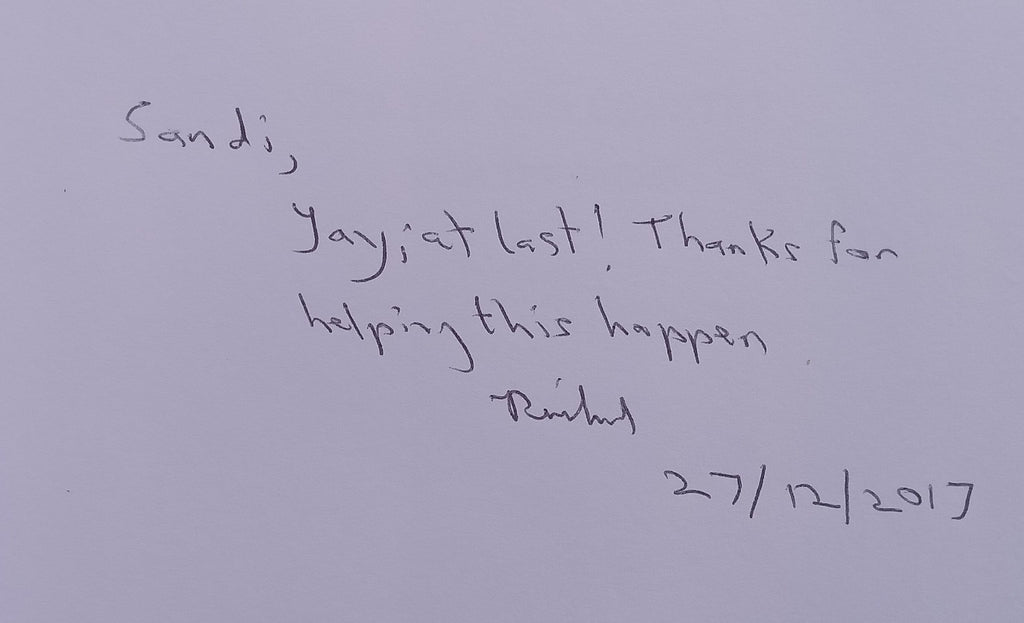 Sandi,
Yay, at last! Thanks for
helping this happen
27/12/2017